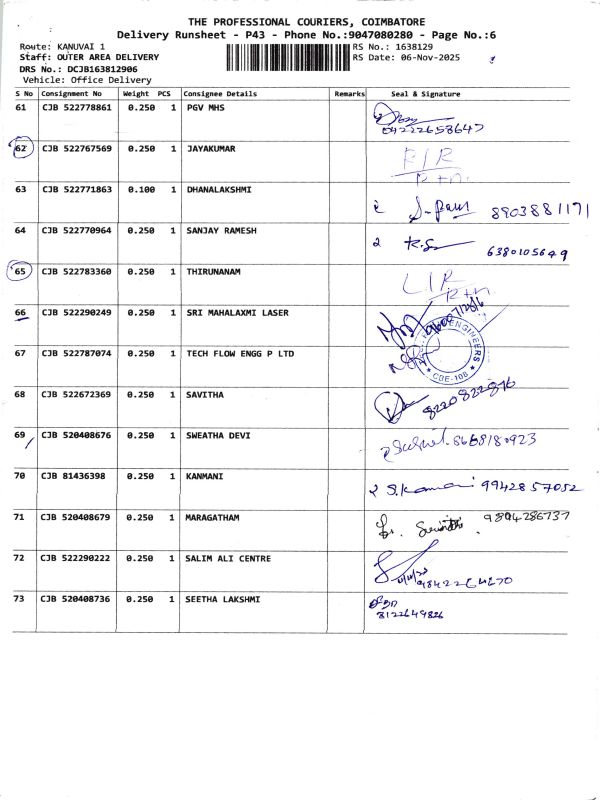 THE PROFESSIONAL COURIERS, COIMBATORE
Delivery Runsheet - P43 - Phone No.:9047080280 - Page No.:6
Route: KANUVAI 1 RS No.: 1638129
Staff: OUTER AREA DELIVERY RS Date: 06-Nov-2025
DRS No.: DCJB163812906
Vehicle: Office Delivery
S No Consignment No Weight PCS Consignee Details Remarks Seal & Signature
61 CJB 522778861 0.250 1 PGV MHS
04222658647
62 CJB 522767569 0.250 1 JAYAKUMAR
63 CJB 522771863 0.100 1 DHANALAKSHMI 8903881171
64 CJB 522770964 0.250 1 SANJAY RAMESH 6380105649
65 CJB 522783360 0.250 1 THIRUNANAM
66 CJB 522290249 0.250 1 SRI MAHALAXMI LASER
67 CJB 522787074 0.250 1 TECH FLOW ENGG P LTD
ENGINEERS
68 CJB 522672369 0.250 1 SAVITHA
69 CJB 520408676 0.250 1 SWEATHA DEVI
70 CJB 81436398 0.250 1 KANMANI 9942857052
71 CJB 520408679 0.250 1 MARAGATHAM 9894286737
72 CJB 522290222 0.250 1 SALIM ALI CENTRE
73 CJB 520408736 0.250 1 SEETHA LAKSHMI
8122649826